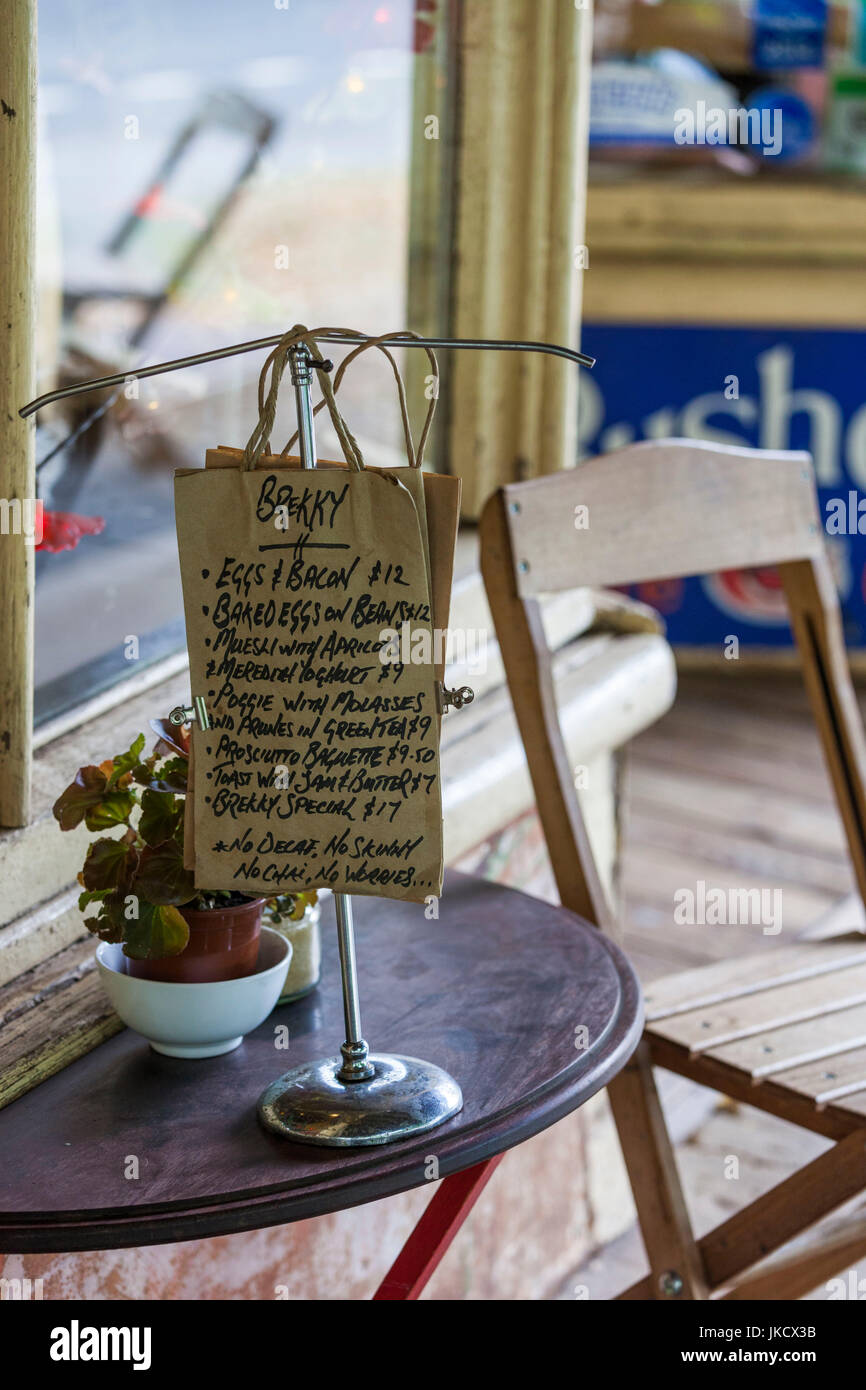 BREKKY
• EGGS & BACON $12
• BAKED EGGS ON BEANS $12
• MUESLI WITH APRICOTS
& MEREDITH YOGHURT $9
• POGGIE WITH MOLASSES
AND PRUNES IN GREEN TEA $9
• PROSCIUTTO BAGUETTE $9.50
• TOAST WITH JAM & BUTTER $7
• BREKKY SPECIAL $17
* NO DECAF, NO SKINNY
NO CHAI, NO WORRIES...
Bushe
alamy
Image ID: JKCX3B
www.alamy.com